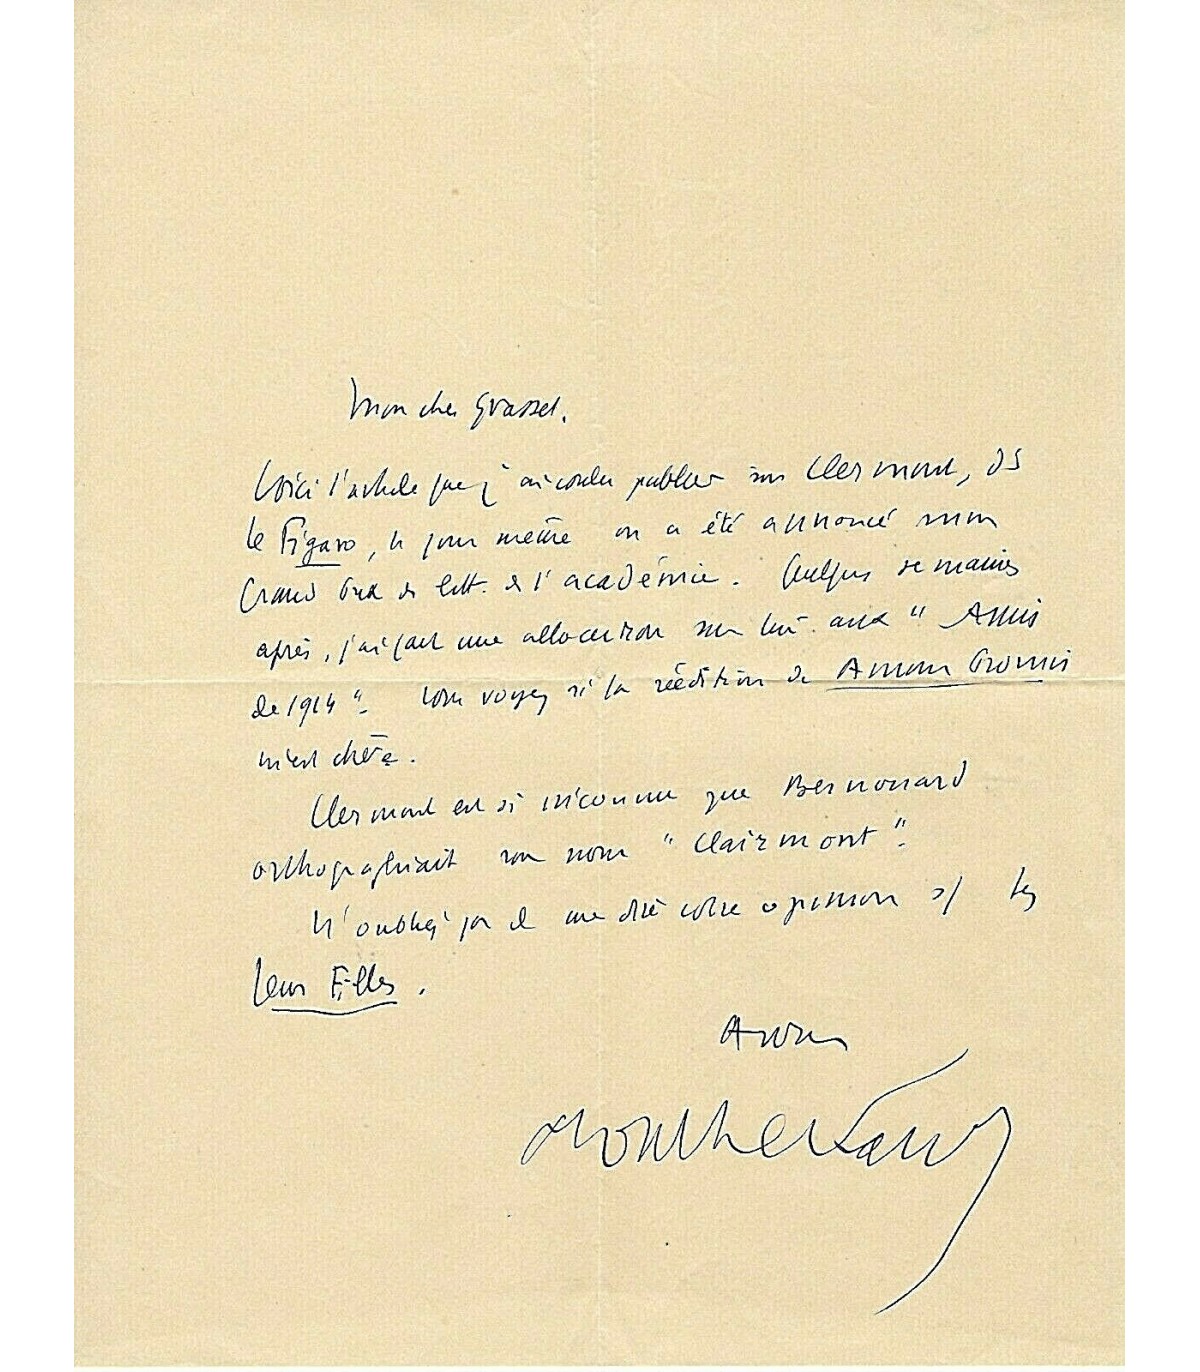 Mon cher Grasset,
Voici l'article que j'ai voulu publier sur Clermont, ds
le Figaro, le jour même où a été annoncé mon
Grand Prix de litt. de l'académie. Quelques semaines
après, j'ai fait une allocution sur lui aux "Amis
de 1914". Vous voyez si la réédition de Amour Promis
m'est chère.
Clermont est si inconnu que Bernouard
orthographiait son nom "Clairmont".
N'oubliez pas de me dire votre opinion s/ les
Leurs Filles.
A vous
Montherlant